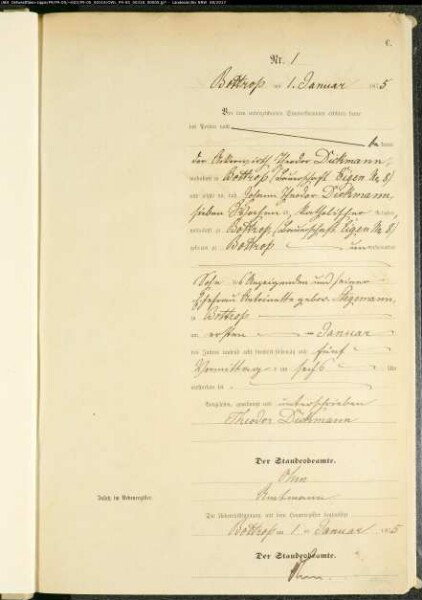 C.
Nr. 1
Bottrop am 1. Januar 1875
Vor dem unterzeichneten Standesbeamten erschien heute
der Person nach
kannt
der Ackerwirth Theodor Dickmann,
wohnhaft zu Bottrop (Bauerschaft Eigen Nr 8)
und zeigte an, daß Johann Theodor Dickmann,
sieben Wochen alt, katholischer Religion,
wohnhaft zu Bottrop (Bauerschaft Eigen Nr 8)
geboren zu Bottrop un
Sohn des Anzeigenden und seiner
Ehefrau Antoinette geborene Stegemann,
zu Bottrop
am ersten Januar
des Jahres tausend acht hundert siebenzig und fünf
Vormittags um sechs Uhr
verstorben sei
Vorgelesen, genehmigt und unterschrieben
Theodor Dickmann
Der Standesbeamte.
Ohm
Amtmann
Die Uebereinstimmung mit dem Hauptregister beglaubigt
Bottrop am 1 ten Januar 1875
Der Standesbeamte.
Ohm.